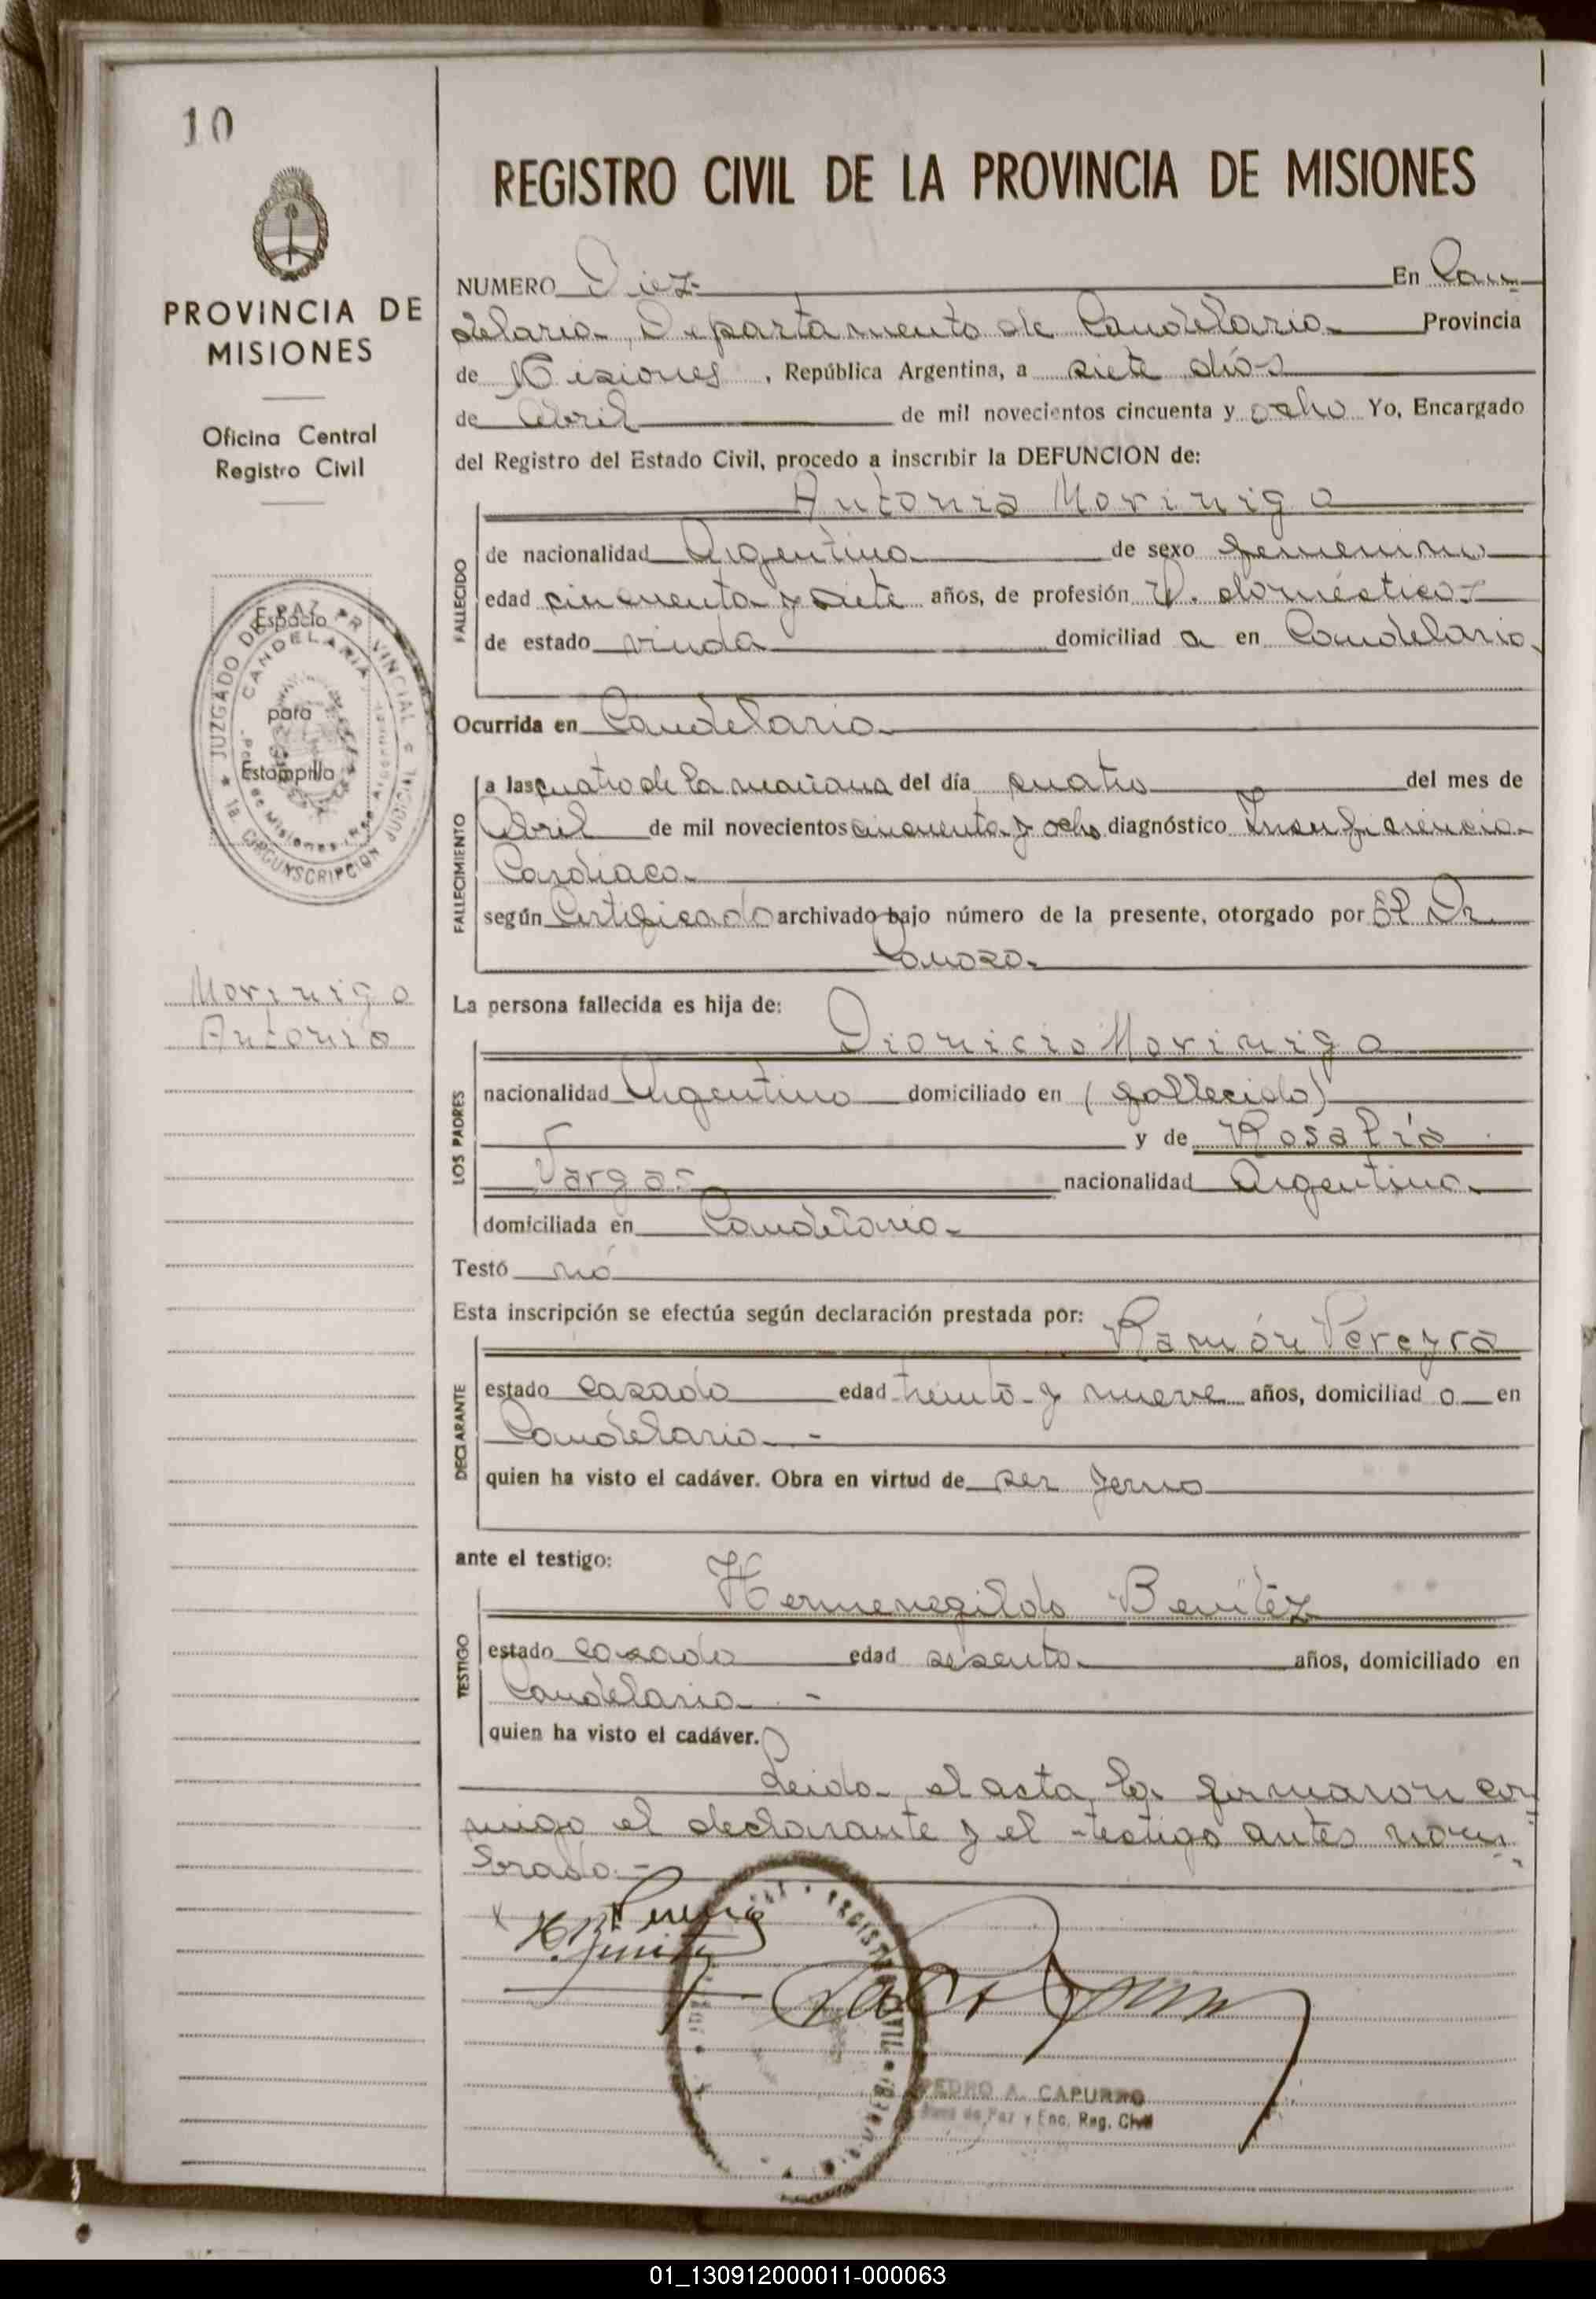 10
PROVINCIA DE
MISIONES
Oficina Central
Registro Civil
JUZGADO DE PAZ PROVINCIAL
CANDELARIA
Espacio
para
Estampilla
1a. CIRCUNSCRIPCION JUDICIAL
Morinigo
Antonia
REGISTRO CIVIL DE LA PROVINCIA DE MISIONES
NUMERO Diez- En Can
delaria, Departamento de Candelaria Provincia
de Misiones, República Argentina, a siete días
de Abril de mil novecientos cincuenta y ocho Yo, Encargado
del Registro del Estado Civil, procedo a inscribir la DEFUNCION de:
Antonia Morinigo
FALLECIDO
de nacionalidad Argentina de sexo femenino
edad cincuenta y siete años, de profesión Q. domésticos
de estado viuda domiciliad a en Candelaria
Ocurrida en Candelaria
FALLECIMIENTO
a las cuatro de la mañana del día cuatro del mes de
Abril de mil novecientos cincuenta y ocho diagnóstico Insuficiencia
Cardiaca
según Certificado archivado bajo número de la presente, otorgado por El Dr.
La persona fallecida es hija de:
LOS PADRES
Dionicio Morinigo
nacionalidad Argentino domiciliado en (fallecido)
y de Rosalía
Vargas nacionalidad Argentina
domiciliada en Candelaria
Testó nó
Esta inscripción se efectúa según declaración prestada por:
DECLARANTE
Ramón Pereyra
estado casado edad treinta y nueve años, domiciliad o en
Candelaria.-
quien ha visto el cadáver. Obra en virtud de ser yerno
ante el testigo:
TESTIGO
Hermenegildo Benitez
estado casado edad sesenta años, domiciliado en
Candelaria.-
quien ha visto el cadáver.
Leida el acta, la firmaron con
migo el declarante y el testigo antes nom
brado.-
H. Benitez
REGISTRO CIVIL
PEDRO A. CAPURRO
Juez de Paz y Enc. Reg. Civil
01_130912000011-000063